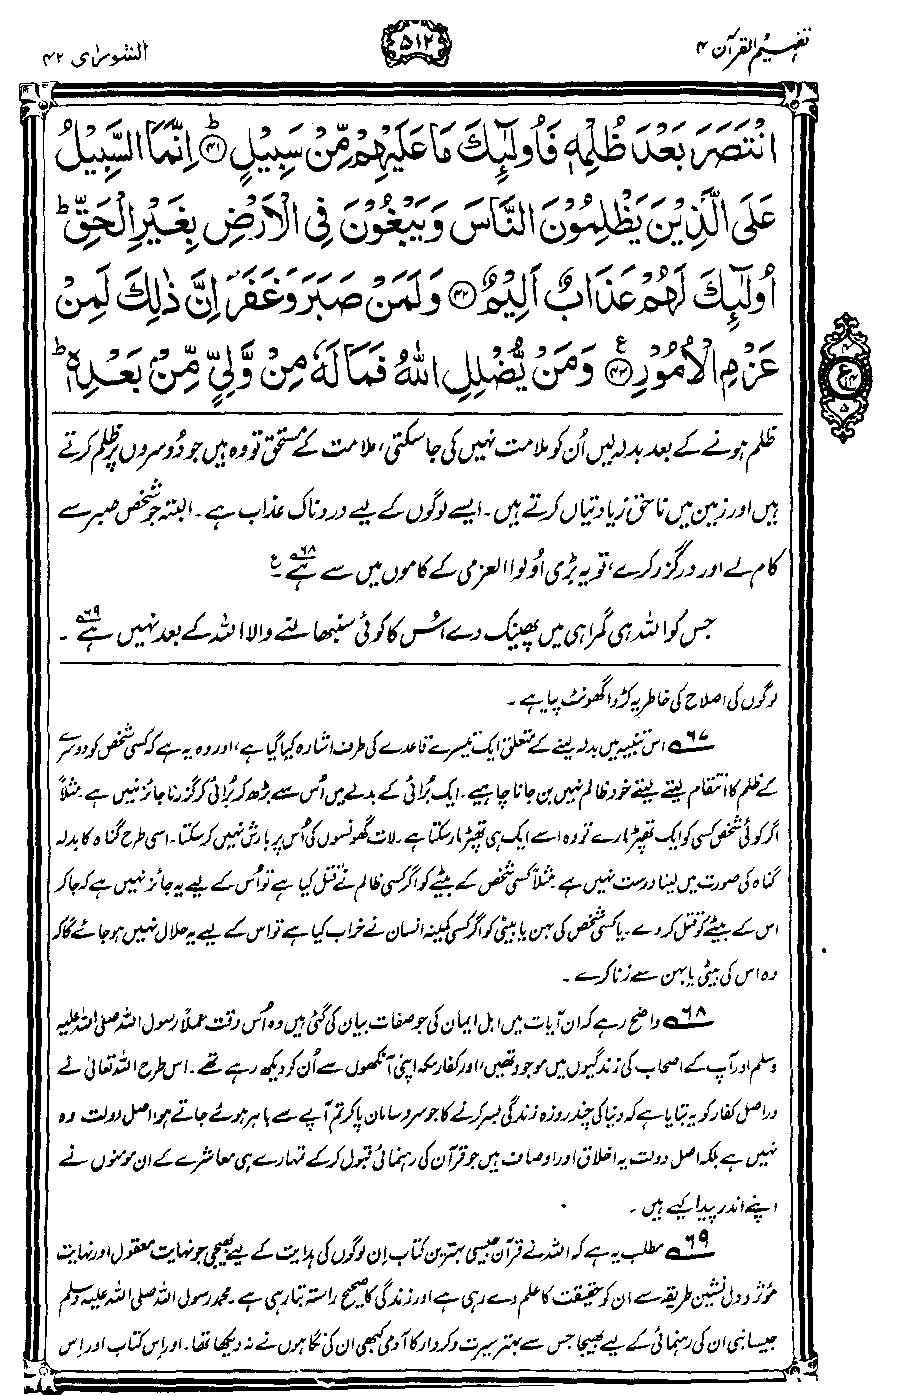 تفہیم القرآن ۴
۵۱۲
الشوریٰ ۴۲
انْتَصَرَ بَعْدَ ظُلْمِهٖ فَاُولٰٓئِكَ مَا عَلَيْهِمْ مِّنْ سَبِيْلٍ ﴿۴۱﴾ اِنَّمَا السَّبِيْلُ
عَلَى الَّذِيْنَ يَظْلِمُوْنَ النَّاسَ وَيَبْغُوْنَ فِى الْاَرْضِ بِغَيْرِ الْحَقِّ ؕ
اُولٰٓئِكَ لَهُمْ عَذَابٌ اَلِيْمٌ ﴿۴۲﴾ وَلَمَنْ صَبَرَ وَغَفَرَ اِنَّ ذٰلِكَ لَمِنْ
عَزْمِ الْاُمُوْرِ ﴿۴۳﴾ ع وَمَنْ يُّضْلِلِ اللّٰهُ فَمَا لَهٗ مِنْ وَّلِيٍّ مِّنْۢ بَعْدِهٖ ؕ
ع
ظلم ہونے کے بعد بدلہ لیں اُن کو ملامت نہیں کی جا سکتی، ملامت کے مستحق تو وہ ہیں جو دُوسروں پر ظلم کرتے
ہیں اور زمین میں ناحق زیادتیاں کرتے ہیں۔ ایسے لوگوں کے لیے دردناک عذاب ہے۔ البتہ جو شخص صبر سے
کام لے اور درگزر کرے، تو یہ بڑی اُولواالعزمی کے کاموں میں سے ہے۶۸۔ ع
جس کو اللہ ہی گمراہی میں پھینک دے اُس کا کوئی سنبھالنے والا اللہ کے بعد نہیں ہے۶۹۔
لوگوں کی اصلاح کی خاطر یہ کڑوا گھونٹ پیا ہے۔
۶۷؎ اس تنبیہ میں بدلہ لینے کے متعلق ایک تیسرے قاعدے کی طرف اشارہ کیا گیا ہے، اور وہ یہ ہے کہ کسی شخص کو دوسرے
کے ظلم کا انتقام لیتے لیتے خود ظالم نہیں بن جانا چاہیے۔ ایک بُرائی کے بدلے میں اُس سے بڑھ کر بُرائی کر گزرنا جائز نہیں ہے۔ مثلاً
اگر کوئی شخص کسی کو ایک تھپڑ مارے تو وہ اسے ایک ہی تھپڑ مار سکتا ہے۔ لات گھونسوں کی اُس پر بارش نہیں کر سکتا۔ اسی طرح گناہ کا بدلہ
گناہ کی صورت میں لینا درست نہیں ہے۔ مثلاً کسی شخص کے بیٹے کو اگر کسی ظالم نے قتل کیا ہے تو اُس کے لیے یہ جائز نہیں ہے کہ جا کر
اس کے بیٹے کو قتل کر دے۔ یا کسی شخص کی بہن یا بیٹی کو اگر کسی کمینہ انسان نے خراب کیا ہے تو اس کے لیے یہ حلال نہیں ہو جائے گا کہ
وہ اس کی بیٹی یا بہن سے زنا کرے۔
۶۸؎ واضح رہے کہ ان آیات میں اہل ایمان کی جو صفات بیان کی گئی ہیں وہ اُس وقت عملاً رسول اللہ صلی اللہ علیہ
وسلم اور آپ کے اصحاب کی زندگیوں میں موجود تھیں، اور کفار مکہ اپنی آنکھوں سے اُن کو دیکھ رہے تھے۔ اس طرح اللہ تعالیٰ نے
دراصل کفار کو یہ بتایا ہے کہ دنیا کی چند روزہ زندگی بسر کرنے کا جو سروسامان پا کر تم آپے سے باہر ہوئے جاتے ہو اصل دولت وہ
نہیں ہے بلکہ اصل دولت یہ اخلاق اور اوصاف ہیں جو قرآن کی رہنمائی قبول کر کے تمہارے ہی معاشرے کے ان مومنوں نے
اپنے اندر پیدا کیے ہیں۔
۶۹؎ مطلب یہ ہے کہ اللہ نے قرآن جیسی بہترین کتاب اِن لوگوں کی ہدایت کے لیے بھیجی جو نہایت معقول اور نہایت
مؤثر و دل نشین طریقہ سے ان کو حقیقت کا علم دے رہی ہے اور زندگی کا صحیح راستہ بتا رہی ہے۔ محمد رسول اللہ صلی اللہ علیہ وسلم
جیسا نبی ان کی رہنمائی کے لیے بھیجا جس سے بہتر سیرت و کردار کا آدمی کبھی ان کی نگاہوں نے نہ دیکھا تھا۔ اور اِس کتاب اور اِس